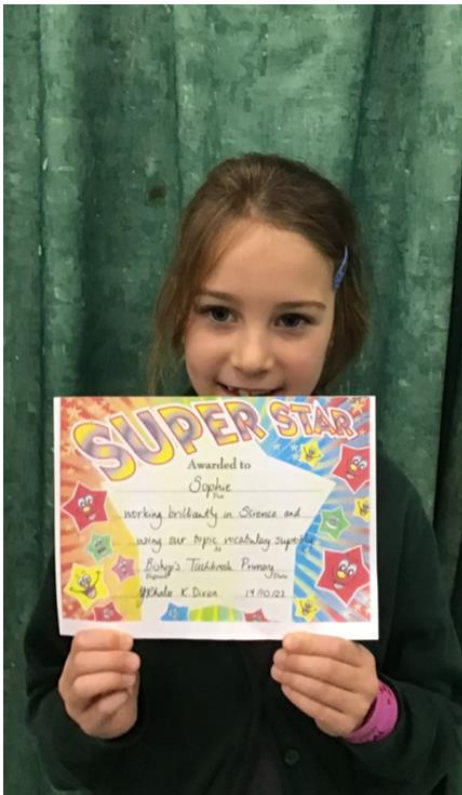 SUPER STAR
Awarded to
Sophie
For
working brilliantly in Science and
using our topic vocabulary superbly
At
Bishop's Tachbrook Primary
Signed Date
K. Dixon 14/10/22